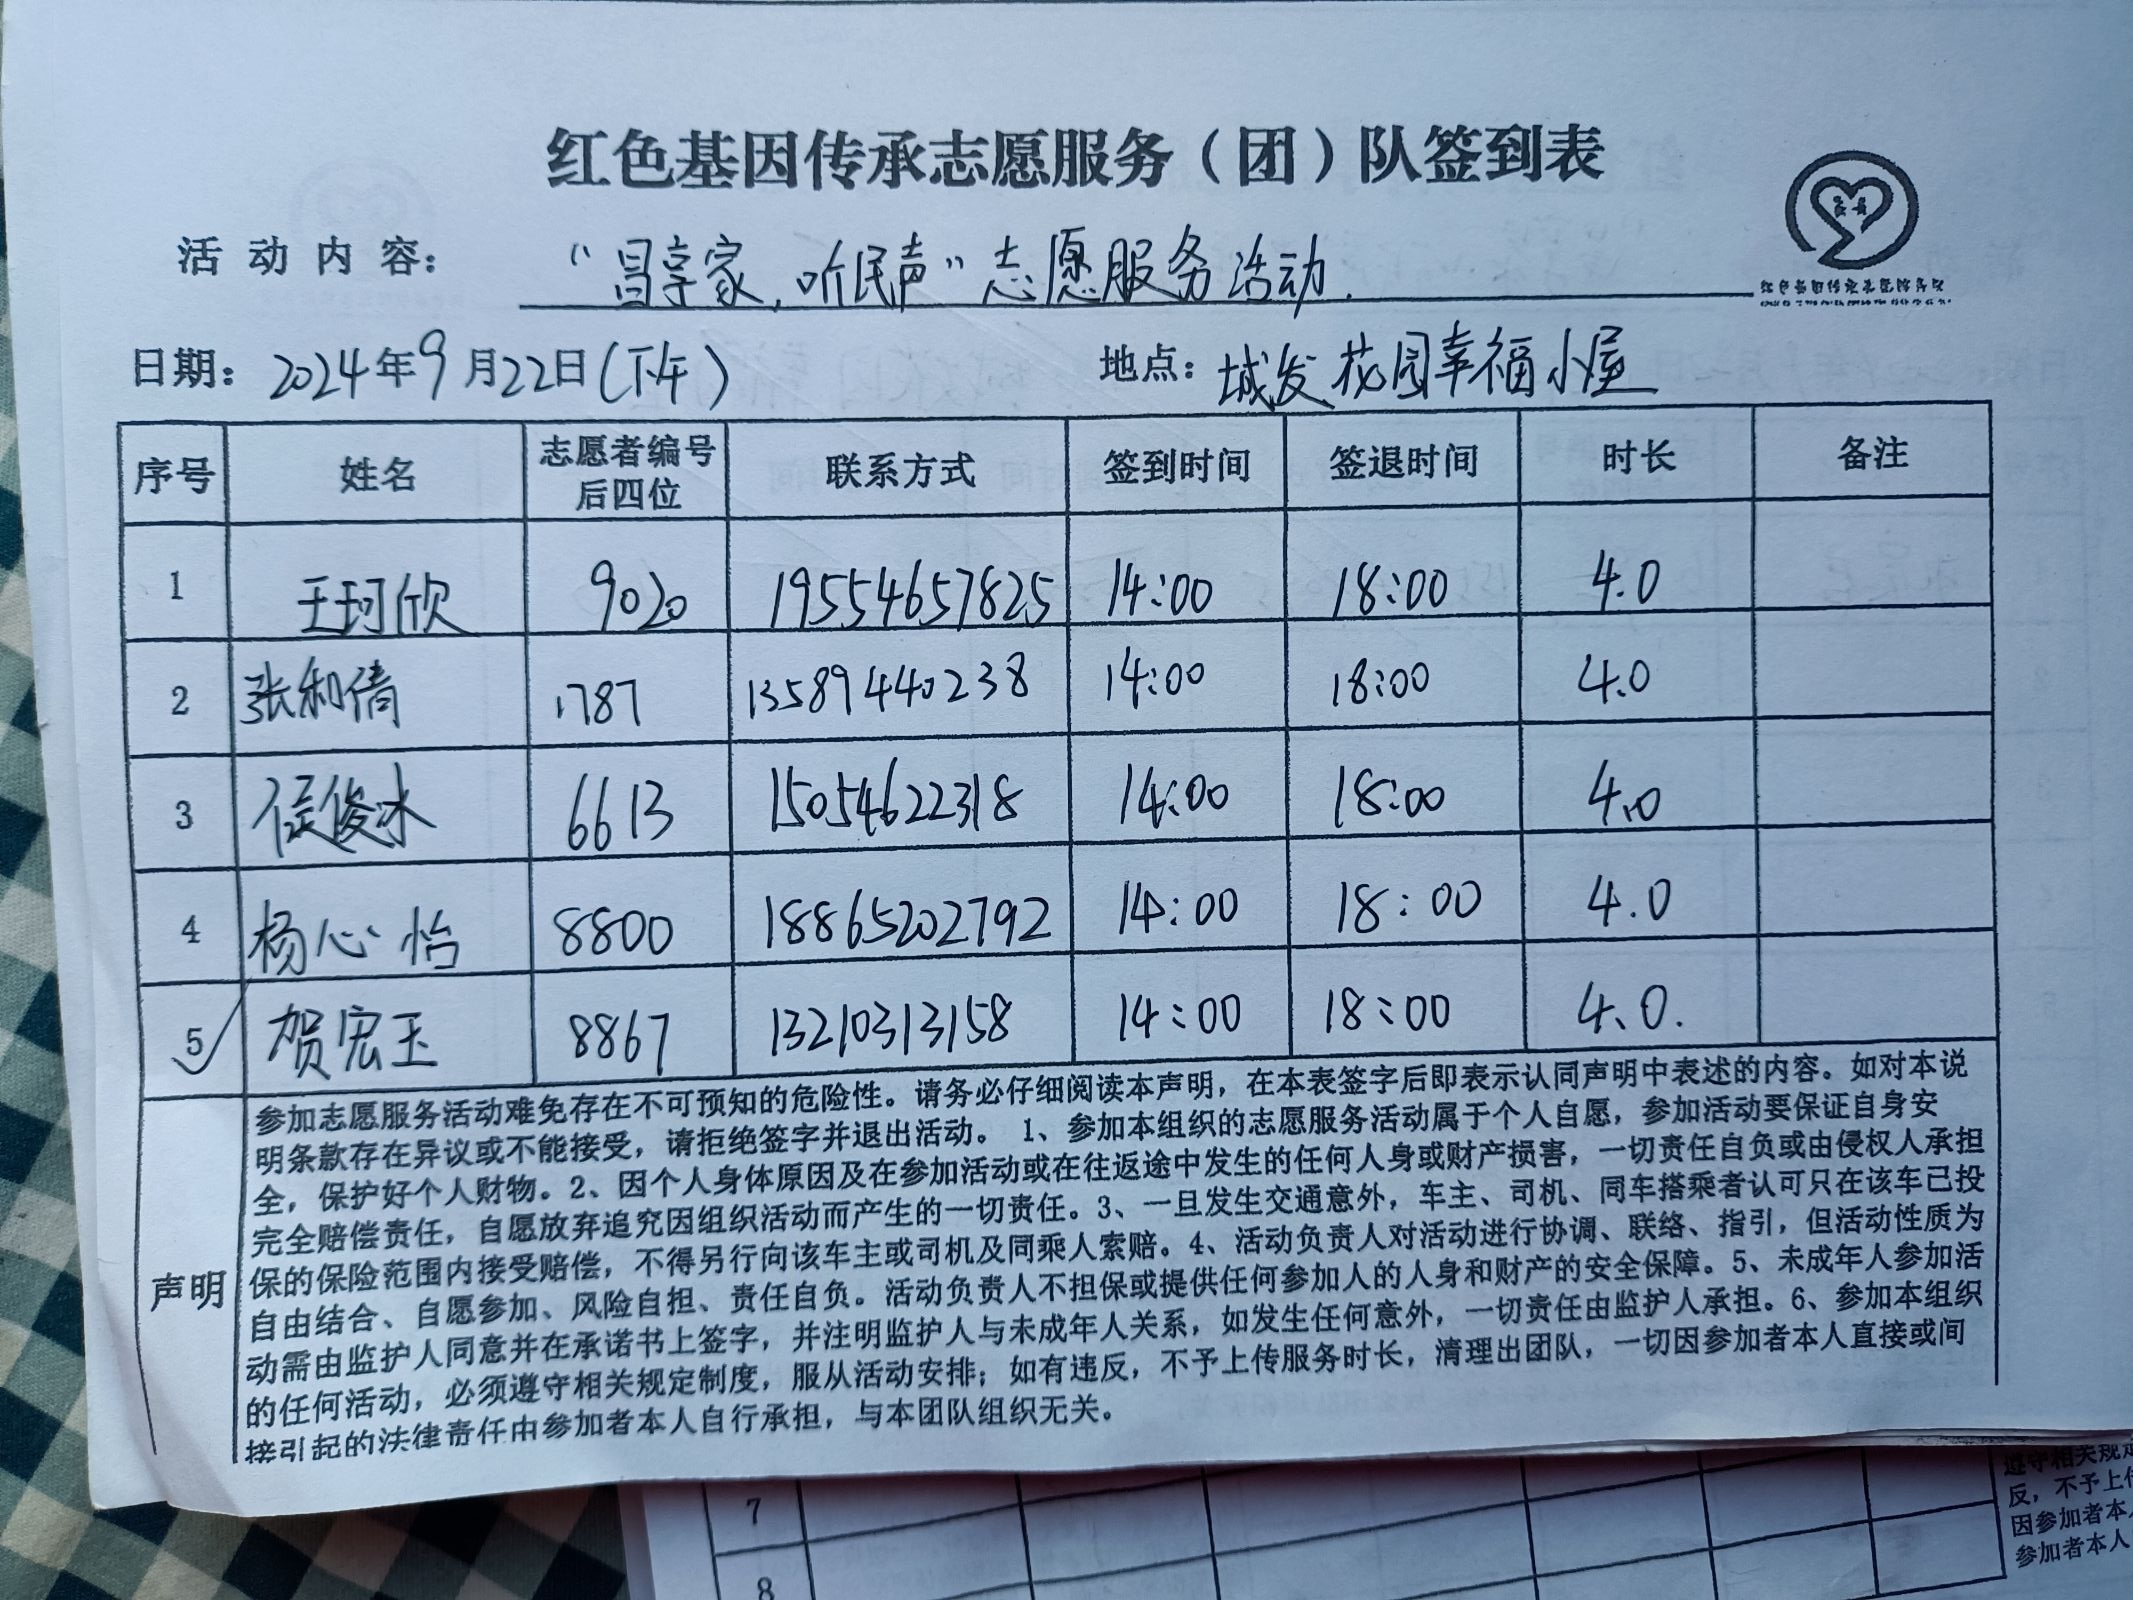 红色基因传承志愿服务（团）队签到表
活动内容： “昌享家，听民声”志愿服务活动.
日期： 2024年9月22日（下午） 地点：城发花园幸福小屋
序号 姓名 志愿者编号后四位 联系方式 签到时间 签退时间 时长 备注
1 王珂欣 9020 19554657825 14:00 18:00 4.0
2 张和倩 1787 13589440238 14:00 18:00 4.0
3 俊冰 6613 15054622318 14:00 18:00 4.0
4 杨心怡 8800 18865202792 14:00 18:00 4.0
5 贺宏玉 8867 13210313158 14:00 18:00 4.0.
声明
参加志愿服务活动难免存在不可预知的危险性。请务必仔细阅读本声明，在本表签字后即表示认同声明中表述的内容。如对本说
明条款存在异议或不能接受，请拒绝签字并退出活动。 1、参加本组织的志愿服务活动属于个人自愿，参加活动要保证自身安
全，保护好个人财物。2、因个人身体原因及在参加活动或在往返途中发生的任何人身或财产损害，一切责任自负或由侵权人承担
完全赔偿责任，自愿放弃追究因组织活动而产生的一切责任。3、一旦发生交通意外，车主、司机、同车搭乘者认可只在该车已投
保的保险范围内接受赔偿，不得另行向该车主或司机及同乘人索赔。4、活动负责人对活动进行协调、联络、指引，但活动性质为
自由结合、自愿参加、风险自担、责任自负。活动负责人不担保或提供任何参加人的人身和财产的安全保障。5、未成年人参加活
动需由监护人同意并在承诺书上签字，并注明监护人与未成年人关系，如发生任何意外，一切责任由监护人承担。6、参加本组织
的任何活动，必须遵守相关规定制度，服从活动安排；如有违反，不予上传服务时长，清理出团队，一切因参加者本人直接或间
接引起的法律责任由参加者本人自行承担，与本团队组织无关。
7
8
遵守相关规定
反，不予上传
因参加者本
参加者本人